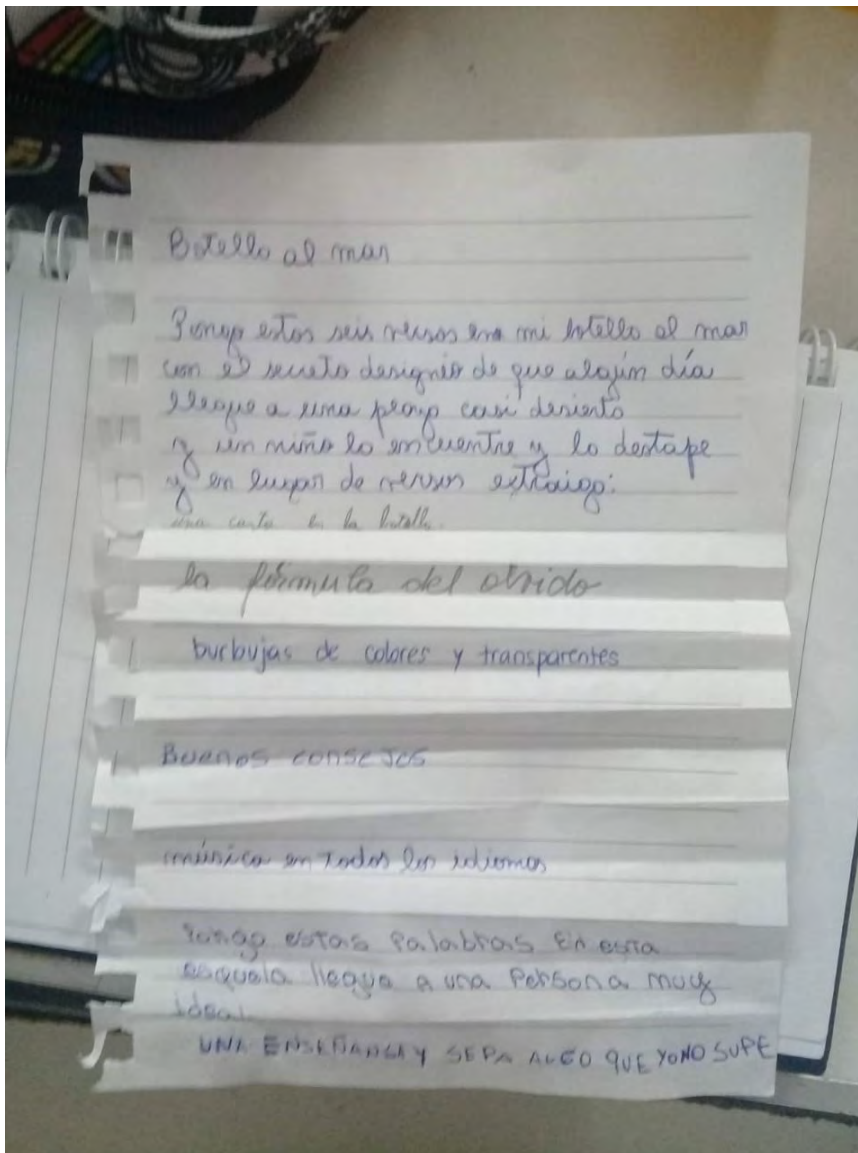 Botella al mar
Pongo estos seis versos en mi botella al mar
con el secreto designio de que algún día
llegue a una playa casi desierta
y un niño la encuentre y la destape
y en lugar de versos extraiga:
una carta en la botella.
la fórmula del olvido
burbujas de colores y transparentes
Buenos consejos
música en todos los idiomas
Pongo estas palabras en esta
esquela llegue a una persona muy
ideal
UNA ENSEÑANSA Y SEPA ALGO QUE YO NO SUPE